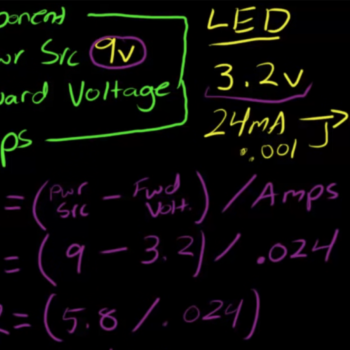 ponent
wr Src 9v
ward Voltage
ps
LED
3.2v
24mA
.001
= (Pwr Src - Fwd Volt.) / Amps
= (9 - 3.2) / .024
= (5.8 / .024)